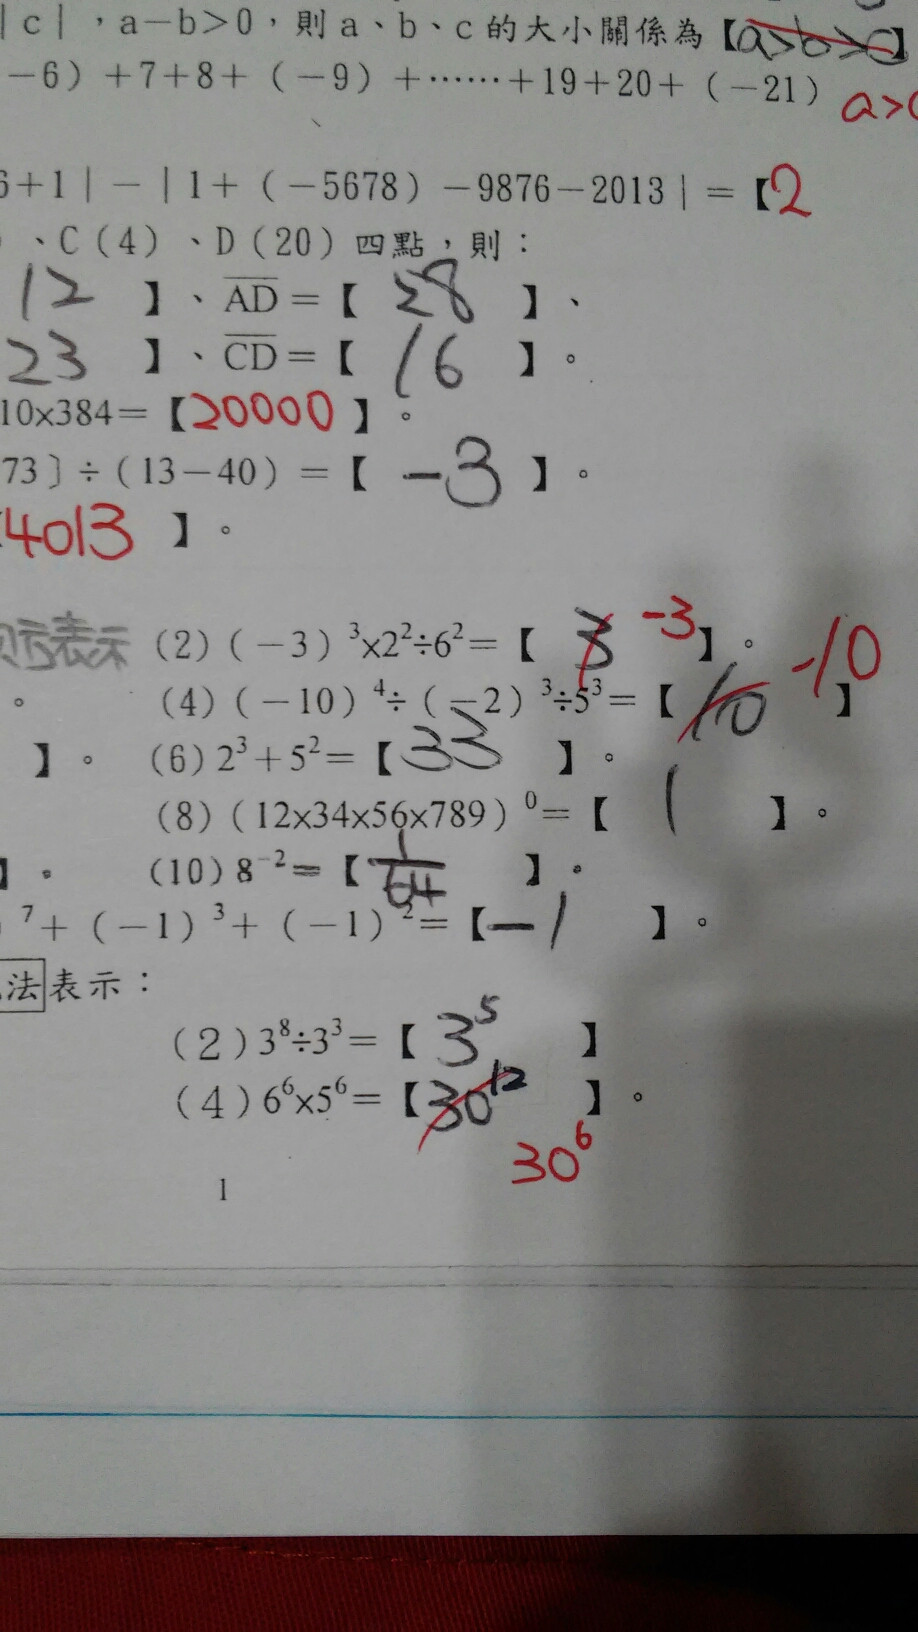 |c|，a－b＞0，則a、b、c的大小關係為【a>b>c】
－6）＋7＋8＋（－9）＋……＋19＋20＋（－21）
a>
6＋1|－|1＋（－5678）－9876－2013|＝【2
、C（4）、D（20）四點，則：
12 】、AD＝【 28 】、
23 】、CD＝【 16 】。
10×384＝【20000】。
73〕÷（13－40）＝【 －3 】。
4013 】。
表示 (2)（－3）³×2²÷6²＝【 3 -3】。
。 (4)（－10）⁴÷（－2）³÷5³＝【 10 -10 】
】。 (6) 2³＋5²＝【33 】。
(8)（12×34×56×789）⁰＝【 1 】。
】。 (10) 8⁻²＝【 1/64 】。
⁷＋（－1）³＋（－1）²＝【－1 】。
法表示：
(2) 3⁸÷3³＝【 3⁵ 】
(4) 6⁶×5⁶＝【30¹² 】。
30⁶
1